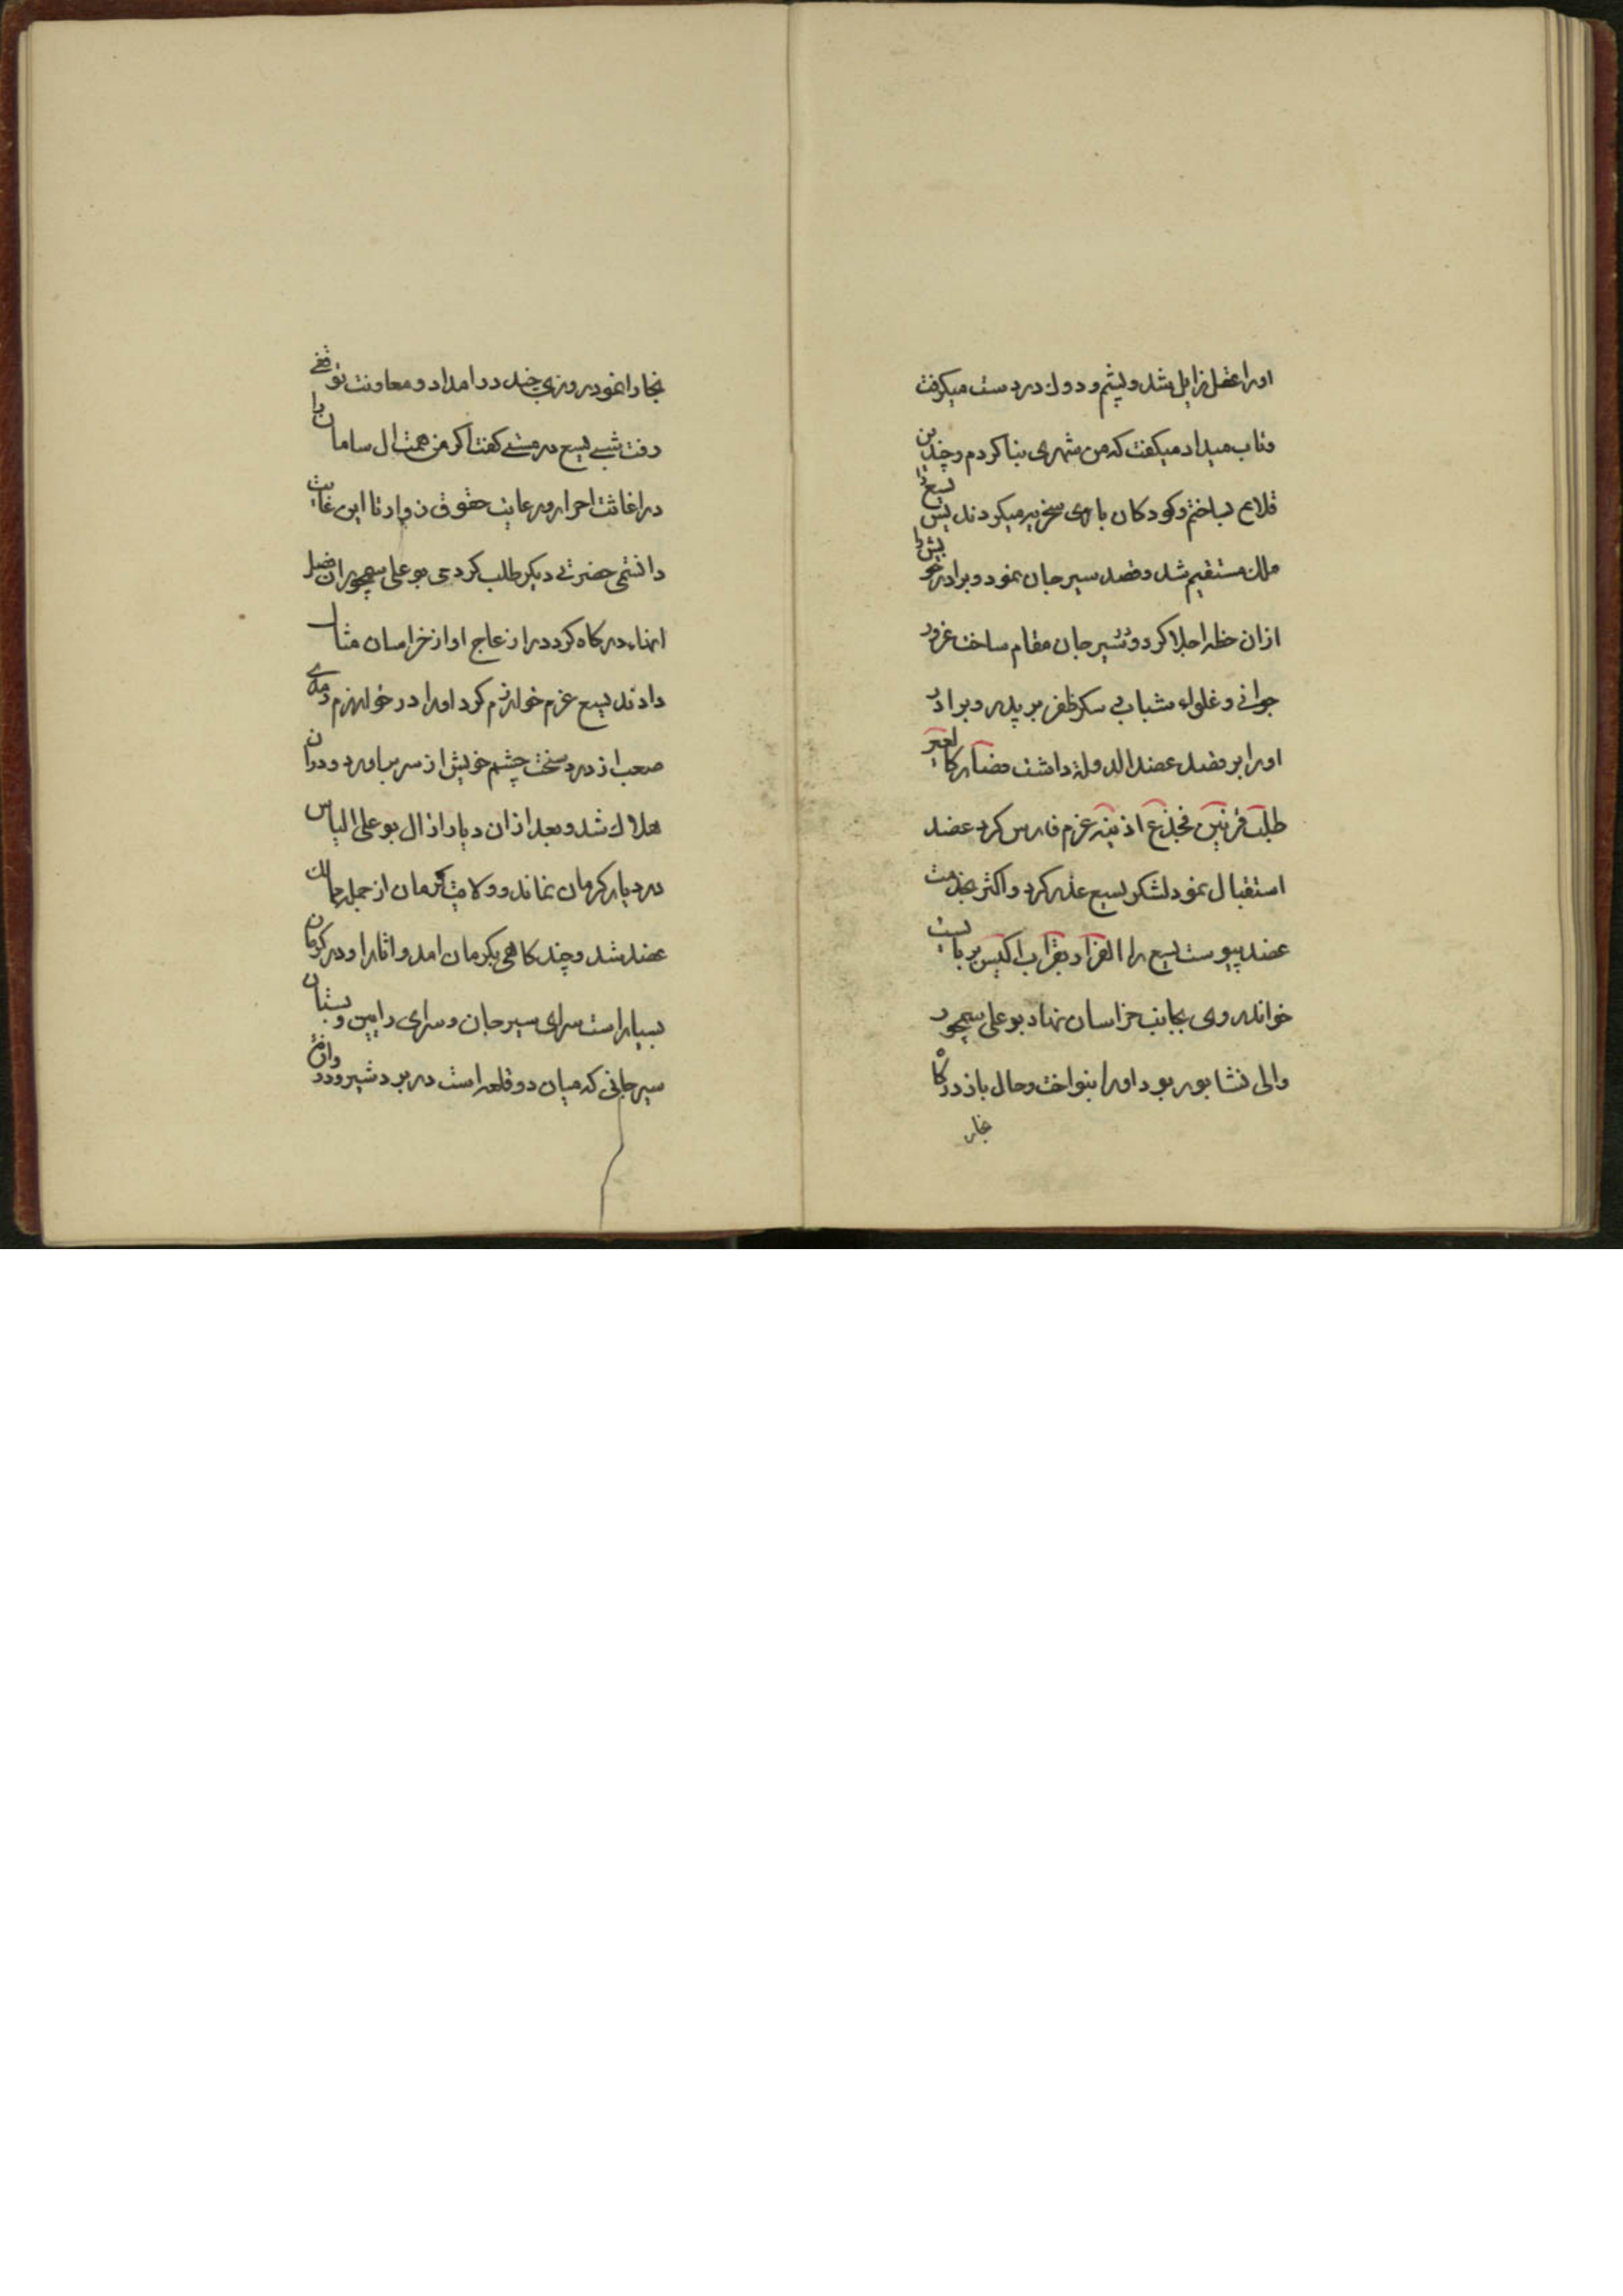 اورا عقل زایل شد و پشم و دوک در دست میکرفت
و تاب میداد میکفت که من شهری بنا کردم و چندین
قلاع بساختم و کودکان با وی سخریه میکردند پس یسع را
ملک مستقیم شد و قصد سیرجان نمود و برادر خویش را
ازان خطه اجلا کرد و بشیرجان مقام ساخت غرور
جوانی و غلواء شباب بی سکر ظفر بر پدر و برادر
اورا بر قصد عضد الدولة داشت فصار کالعیر
طلب قرنین فجذع اذنیه عزم فارس کرد عضد
استقبال نمود لشکر یسع غدر کرد و اکثر بخدمت
عضد پیوست یسع را الفرار بقراب اکیس بر بایست
خواند روی بجانب خراسان نهاد بو علی سیمجور
والی نشابور بود اورا بنواخت و حال باز درکاه
بخارا
بخارا نمود روزی چند در امداد و معاونت توقفی
رفت شبی یسع در مستی کفت اکر من همت ال سامان را
در اغاثت احرار و رعایت حقوق زوار تا این غایت
دانستمی حضرتی دیکر طلب کردمی بو علی سیمجور ان فصل
انهاء درکاه کرد در ازعاج او از خراسان مثال
دادند یسع عزم خوارزم کرد اورا در خوارزم رمدی
صعب از درد سخت چشم خویش از سر بیاورد و دران
هلاک شد و بعد ازان دیار از ال بو علی الیاس
در دیار کرمان نماند و ولایت کرمان از جمله ممالک
عضد شد و چند کاهی بکرمان امد و اثار او در کرمان
بسیار است سرای سیرجان و سرای رامین و بستان
سیرجانی که میان دو قلعه است در بردشیر ودر وازهٔ